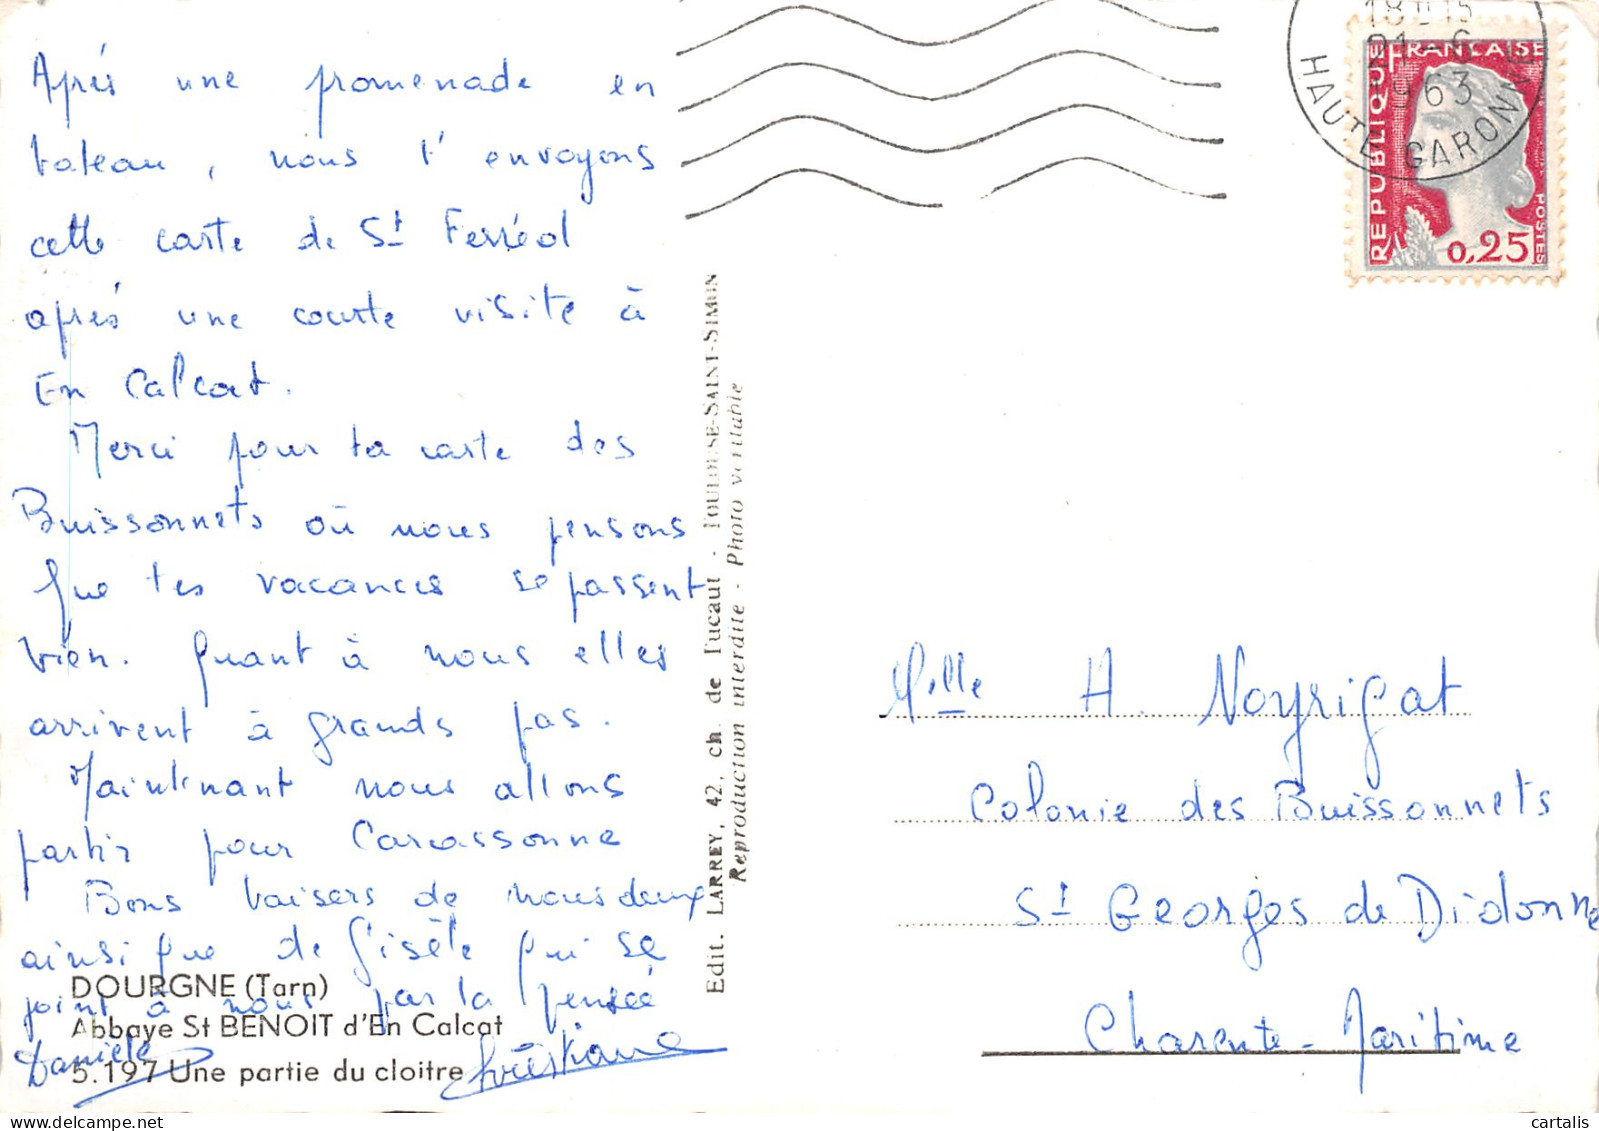 Après une promenade en
bateau, nous t'envoyons
cette carte de St Ferréol
après une courte visite à
En Calcat.
Merci pour ta carte des
Buissonnets où nous pensons
que tes vacances se passent
bien. Quant à nous elles
arrivent à grands pas.
Maintenant nous allons
partir pour Carcassonne
Bons baisers de nous deux
ainsi que de Gisèle qui se
joint à nous par la pensée
Danièle Christiane
DOURGNE (Tarn)
Abbaye St BENOIT d'En Calcat
5.197 Une partie du cloitre
Edit. LARREY, 42, ch. de Tucaut - TOULOUSE-SAINT-SIMON
Reproduction interdite - Photo véritable
18H15
21-6
1963
HAUTE GARONNE
REPUBLIQUE FRANÇAISE
POSTES
0,25
Melle A. Noyrigat
Colonie des Buissonnets
St Georges de Didonne
Charente-Maritime
cartalis